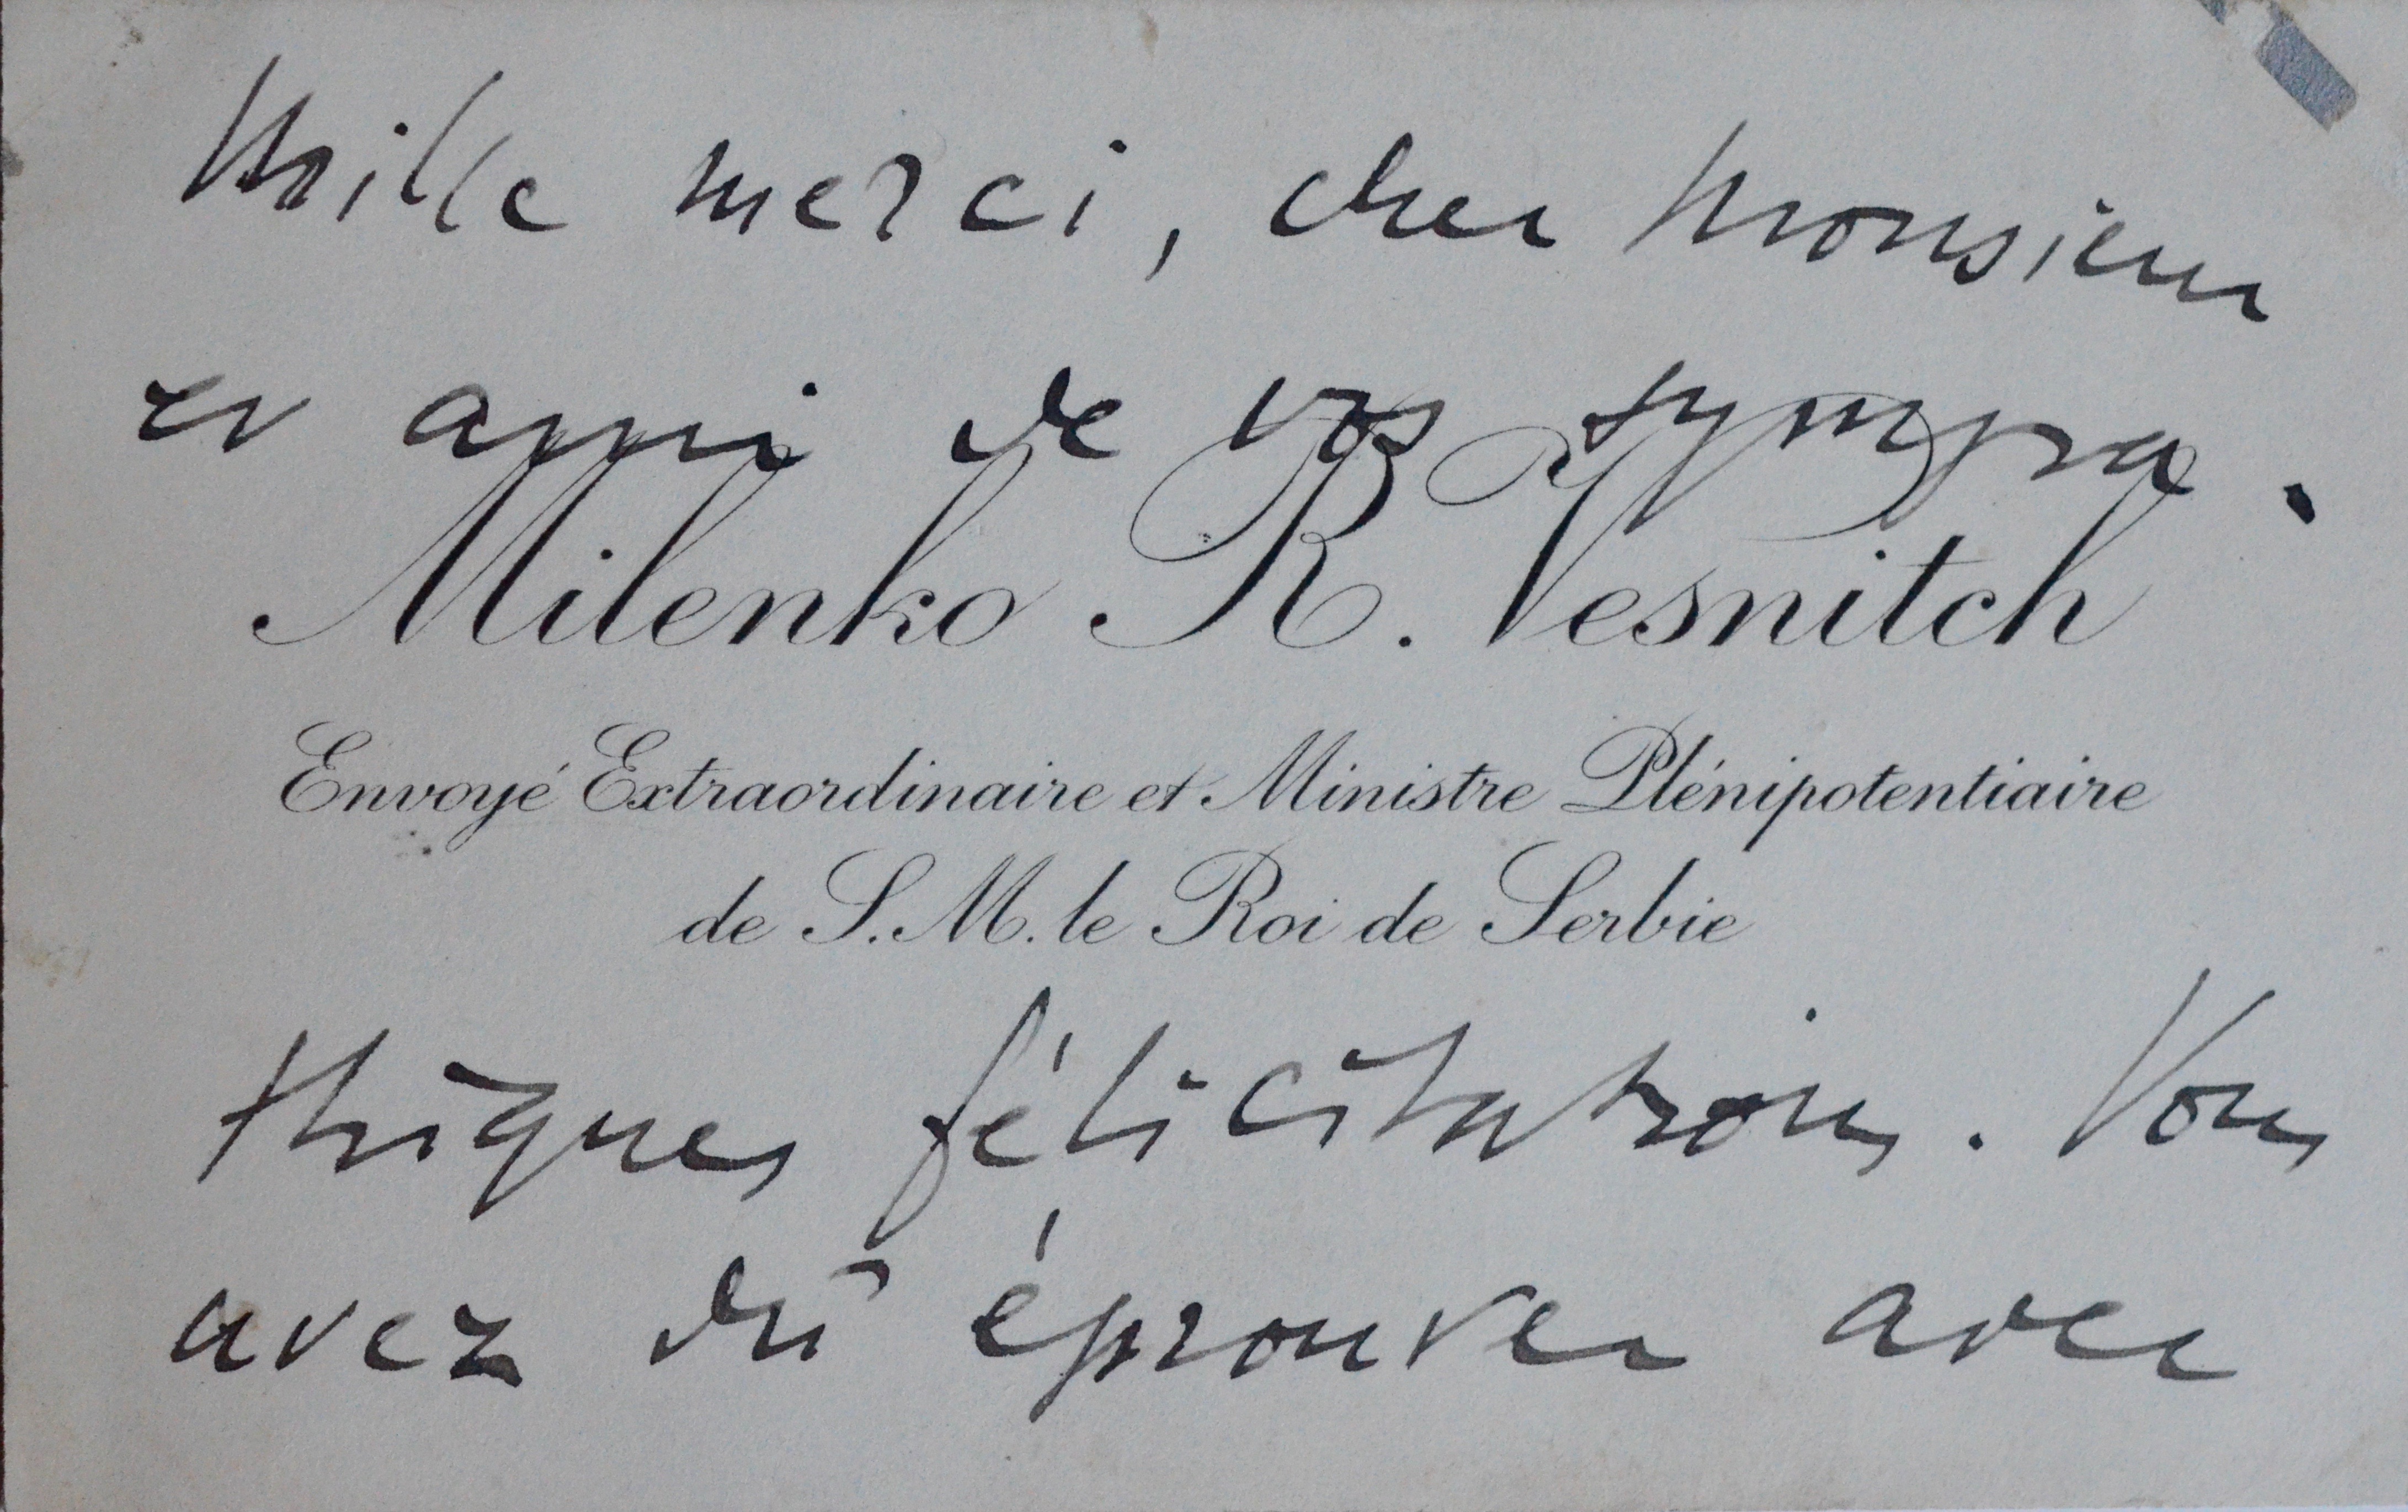 Mille merci, cher Monsieur
et ami de vos sympa-
Milenko R. Vesnitch
Envoyé Extraordinaire et Ministre Plénipotentiaire
de S. M. le Roi de Serbie
thiques félicitations. Vous
avez dû éprouver avec